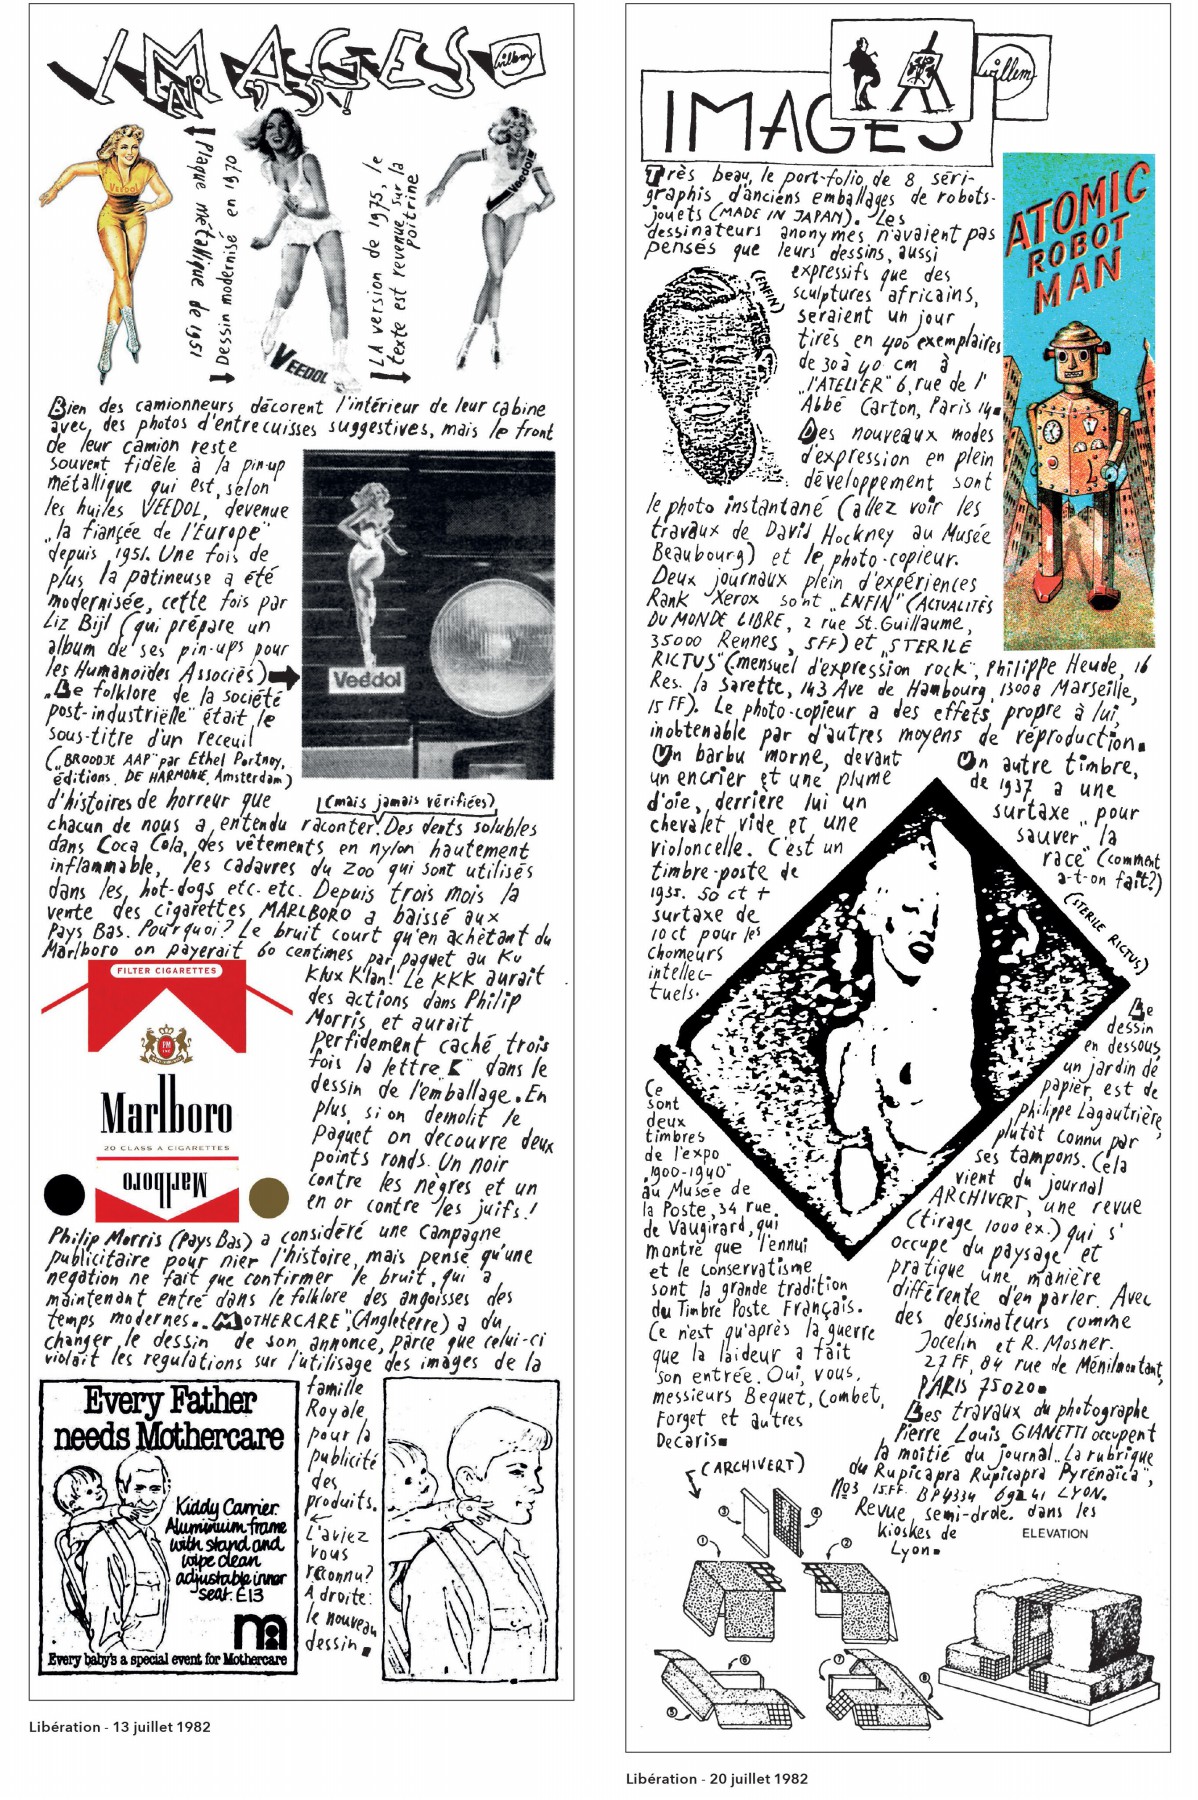 IMAGES
N° 55!
Willem
Veedol
Plaque métallique de 1951
Dessin modernisé en 1970
VEEDOL
LA version de 1975, le
texte est revenue sur la
poitrine
Veedol
Bien des camionneurs décorent l'intérieur de leur cabine
avec des photos d'entrecuisses suggestives, mais le front
de leur camion reste
souvent fidèle à la pin-up
métallique qui est, selon
les huiles VEEDOL, devenue
„la fiancée de l'Europe"
depuis 1951. Une fois de
plus la patineuse a été
modernisée, cette fois par
Liz Bijl (qui prépare un
album de ses pin-ups pour
les Humanoïdes Associés)
Veedol
„Le folklore de la société
post-industrielle" était le
sous-titre d'un receuil
(„BROODJE AAP" par Ethel Portnoy,
éditions DE HARMONIE, Amsterdam)
d'histoires de horreur que
(mais jamais vérifiées)
chacun de nous a entendu raconter. Des dents solubles
dans Coca Cola, des vêtements en nylon hautement
inflammable, les cadavres du Zoo qui sont utilisés
dans les hot-dogs etc. etc. Depuis trois mois la
vente des cigarettes MARLBORO a baissé aux
Pays Bas. Pourquoi? Le bruit court qu'en achètant du
Marlboro on payerait 60 centimes par paquet au Ku
Klux Klan! Le KKK aurait
des actions dans Philip
Morris et aurait
perfidement caché trois
fois la lettre „K" dans le
dessin de l'emballage. En
plus, si on demolit le
paquet on decouvre deux
points ronds. Un noir
contre les nègres et un
en or contre les juifs!
FILTER CIGARETTES
PM
Marlboro
20 CLASS A CIGARETTES
Marlboro
Philip Morris (Pays Bas) a considéré une campagne
publicitaire pour nier l'histoire, mais pense qu'une
negation ne fait que confirmer le bruit, qui a
maintenant entré dans le folklore des angoisses des
temps modernes.. „MOTHERCARE", (Angleterre) a du
changer le dessin de son annonce, parce que celui-ci
violait les regulations sur l'utilisage des images de la
famille
Royale
pour la
publicité
des
produits.
L'aviez
vous
reconnu?
A droite:
le nouveau
dessin.
Every Father
needs Mothercare
Kiddy Carrier.
Aluminium frame
with stand and
wipe clean
adjustable inner
seat. £13
Every baby's a special event for Mothercare
Libération - 13 juillet 1982
IMAGES
Willem
Très beau, le port-folio de 8 séri-
graphis d'anciens emballages de robots-
jouets (MADE IN JAPAN). Les
dessinateurs anonymes n'avaient pas
pensés que leurs dessins, aussi
expressifs que des
sculptures africains,
seraient un jour
tirès en 400 exemplaires
de 30 à 40 cm à
„l'ATELIER" 6, rue de l'
Abbé Carton, Paris 14.
(ENFIN)
ATOMIC
ROBOT
MAN
Des nouveaux modes
d'expression en plein
développement sont
le photo instantané (allez voir les
travaux de David Hockney au Musée
Beaubourg) et le photo-copieur.
Deux journaux plein d'expériences
Rank Xerox sont „ENFIN" (ACTUALITÈS
DU MONDE LIBRE, 2 rue St. Guillaume,
35000 Rennes, 5FF) et „STERILE
RICTUS" („mensuel d'expression rock", Philippe Heude, 16
Res. la Sarette, 143 Ave de Hambourg, 13008 Marseille,
15 FF). Le photo-copieur a des effets, propre à lui,
inobtenable par d'autres moyens de réproduction.
Un barbu morne, devant
un encrier et une plume
d'oie, derrière lui un
chevalet vide et une
violoncelle. C'est un
timbre-poste de
1935. 50 ct +
surtaxe de
10 ct pour les
chomeurs
intellec-
tuels.
Un autre timbre,
de 1937 a une
surtaxe „pour
sauver" la
race" (comment
a-t-on fait?)
(STERILE RICTUS)
Ce
sont
deux
timbres
de l'expo
„1900-1940"
au Musée de
la Poste, 34 rue
de Vaugirard, qui
montre que l'ennui
et le conservatisme
sont la grande tradition
du Timbre Poste Français.
Ce n'est qu'après la guerre
que la laideur a fait
son entrée. Oui, vous,
messieurs Bequet, Combet,
Forget et autres
Decaris.
Le
dessin
en dessous,
un jardin de
papier, est de
Philippe Lagautrière,
plutôt connu par
ses tampons. Cela
vient du journal
ARCHIVERT, une revue
(tirage 1000 ex.) qui s'
occupe du paysage et
pratique une manière
différente d'en parler. Avec
des dessinateurs comme
Jocelin et R. Mosner.
27 FF, 84 rue de Ménilmontant,
PARIS 75020.
Les travaux du photographe
Pierre Louis GIANETTI occupent
la moitié du journal „La rubrique
du Rupicapra Rupicapra Pyrénaïca",
No3 15FF. BP4334 69241 LYON.
Revue semi-drole. dans les
kioskes de
Lyon.
(ARCHIVERT)
ELEVATION
1
2
3
4
5
6
7
8
Libération - 20 juillet 1982